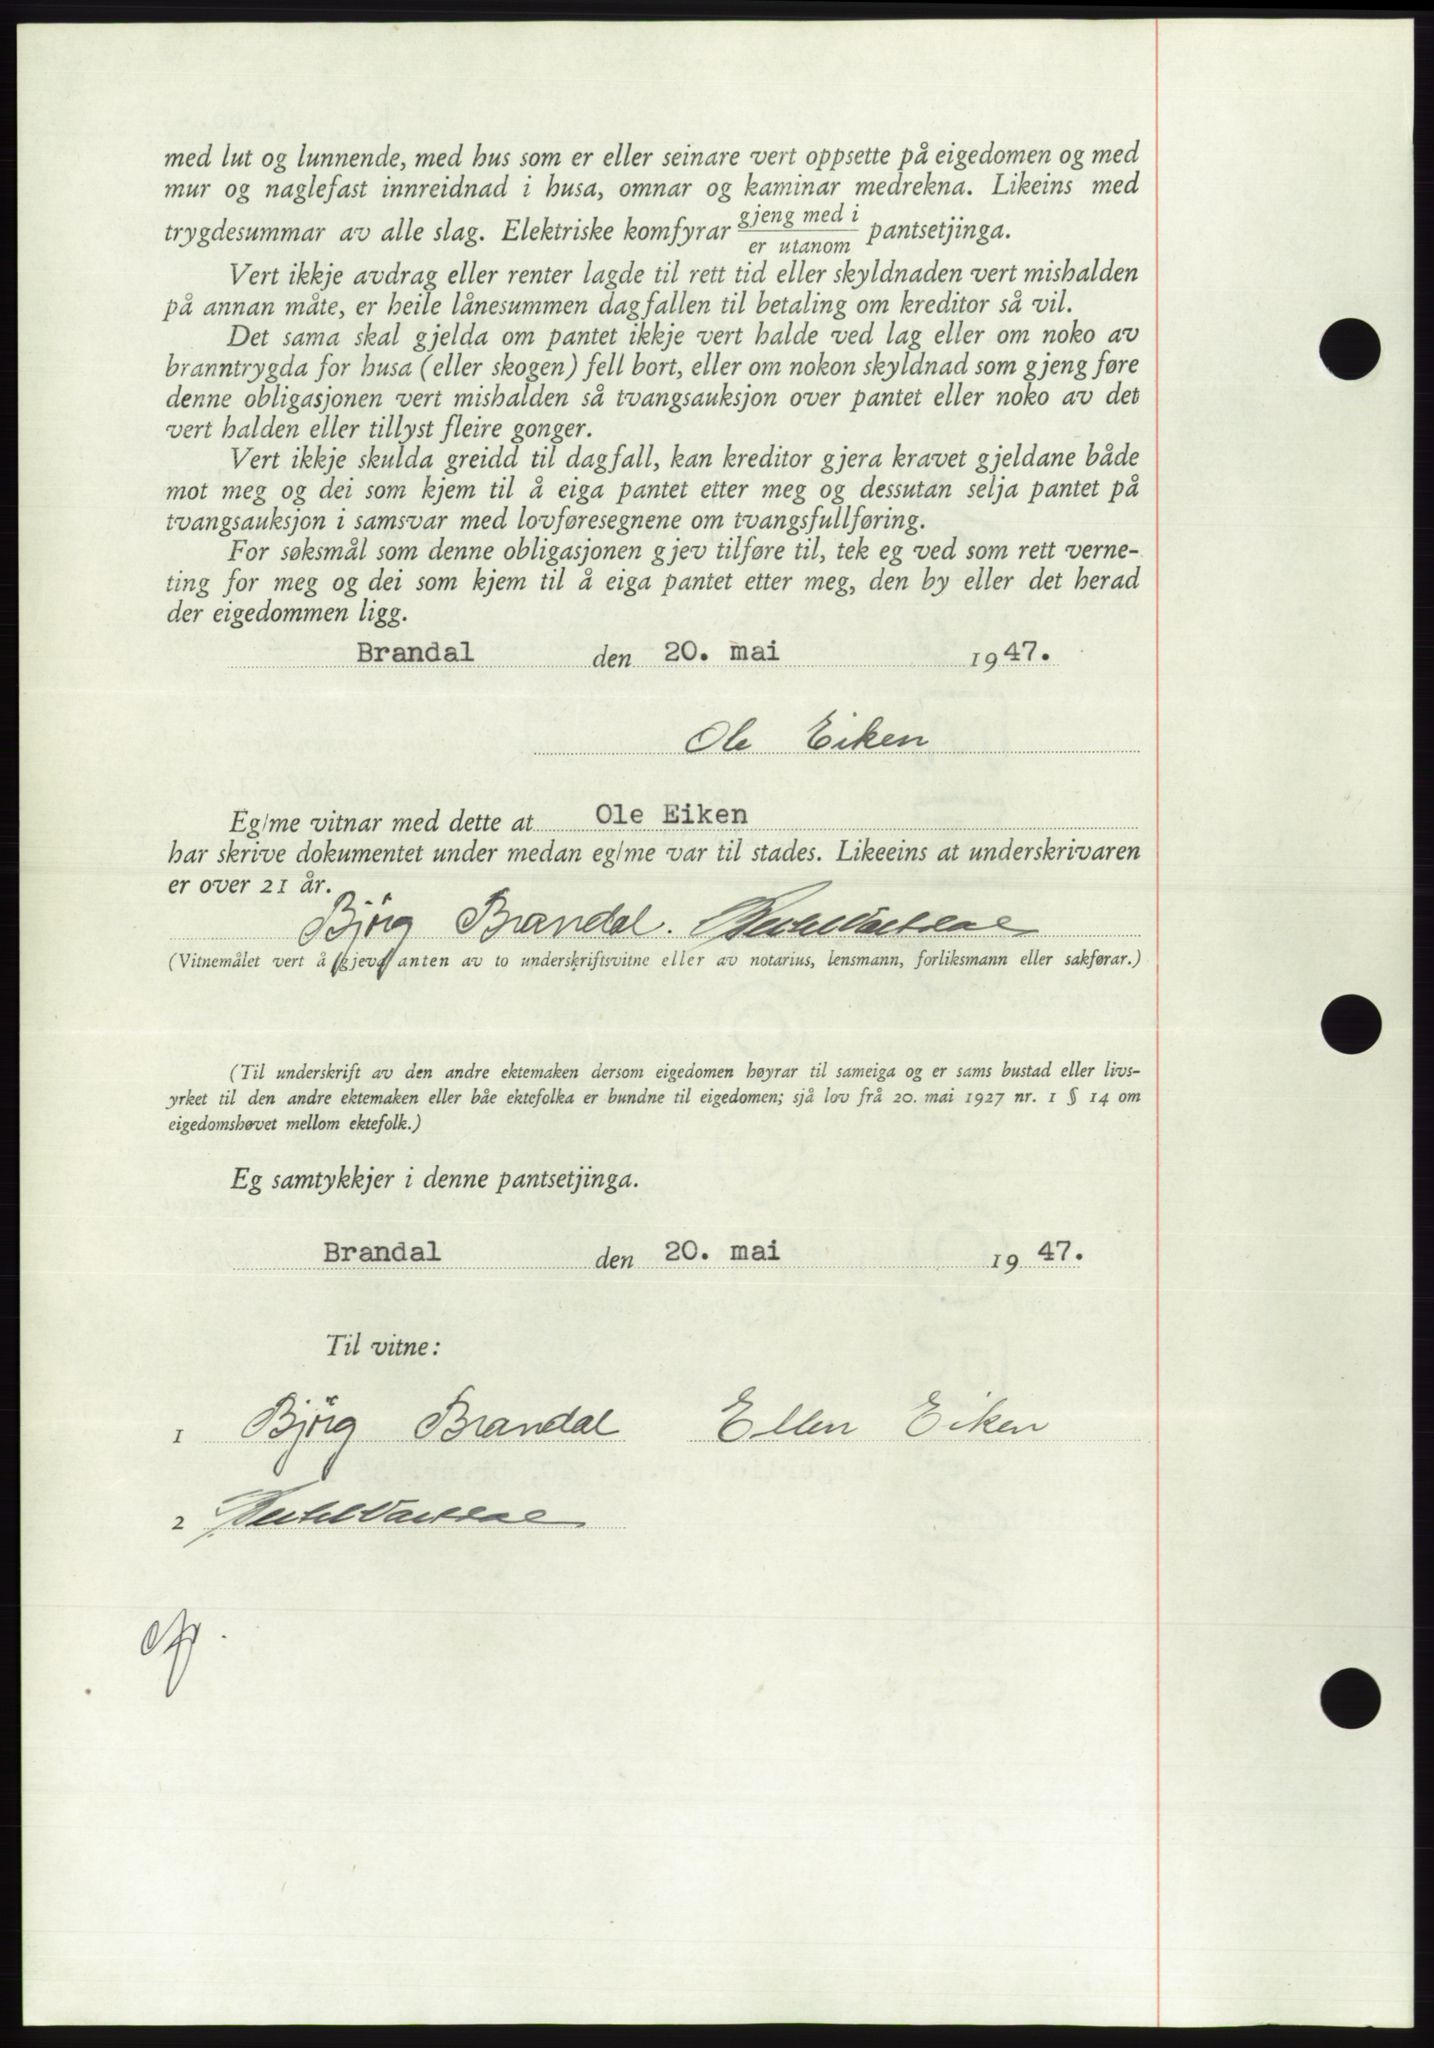 med lut og lunnende, med hus som er eller seinare vert oppsette på eigedomen og med
mur og naglefast innreidnad i husa, omnar og kaminar medrekna. Likeins med
trygdesummar av alle slag. Elektriske komfyrar gjeng med i / er utanom pantsetjinga.
Vert ikkje avdrag eller renter lagde til rett tid eller skyldnaden vert mishalden
på annan måte, er heile lånesummen dagfallen til betaling om kreditor så vil.
Det sama skal gjelda om pantet ikkje vert halde ved lag eller om noko av
branntrygda for husa (eller skogen) fell bort, eller om nokon skyldnad som gjeng føre
denne obligasjonen vert mishalden så tvangsauksjon over pantet eller noko av det
vert halden eller tillyst fleire gonger.
Vert ikkje skulda greidd til dagfall, kan kreditor gjera kravet gjeldane både
mot meg og dei som kjem til å eiga pantet etter meg og dessutan selja pantet på
tvangsauksjon i samsvar med lovføresegnene om tvangsfullføring.
For søksmål som denne obligasjonen gjev tilføre til, tek eg ved som rett verne-
ting for meg og dei som kjem til å eiga pantet etter meg, den by eller det herad
der eigedommen ligg.
Brandal den 20. mai 1947.
Ole Eiken
Eg/me vitnar med dette at Ole Eiken
har skrive dokumentet under medan eg/me var til stades. Likeeins at underskrivaren
er over 21 år.
Bjørg Brandal.
(Vitnemålet vert å gjeva anten av to underskriftsvitne eller av notarius, lensmann, forliksmann eller sakførar.)
(Til underskrift av den andre ektemaken dersom eigedomen høyrar til sameiga og er sams bustad eller livs-
yrket til den andre ektemaken eller båe ektefolka er bundne til eigedomen; sjå lov frå 20. mai 1927 nr. 1 § 14 om
eigedomshøvet mellom ektefolk.)
Eg samtykkjer i denne pantsetjinga.
Brandal den 20. mai 1947.
Til vitne:
1 Bjørg Brandal Ellen Eiken
2